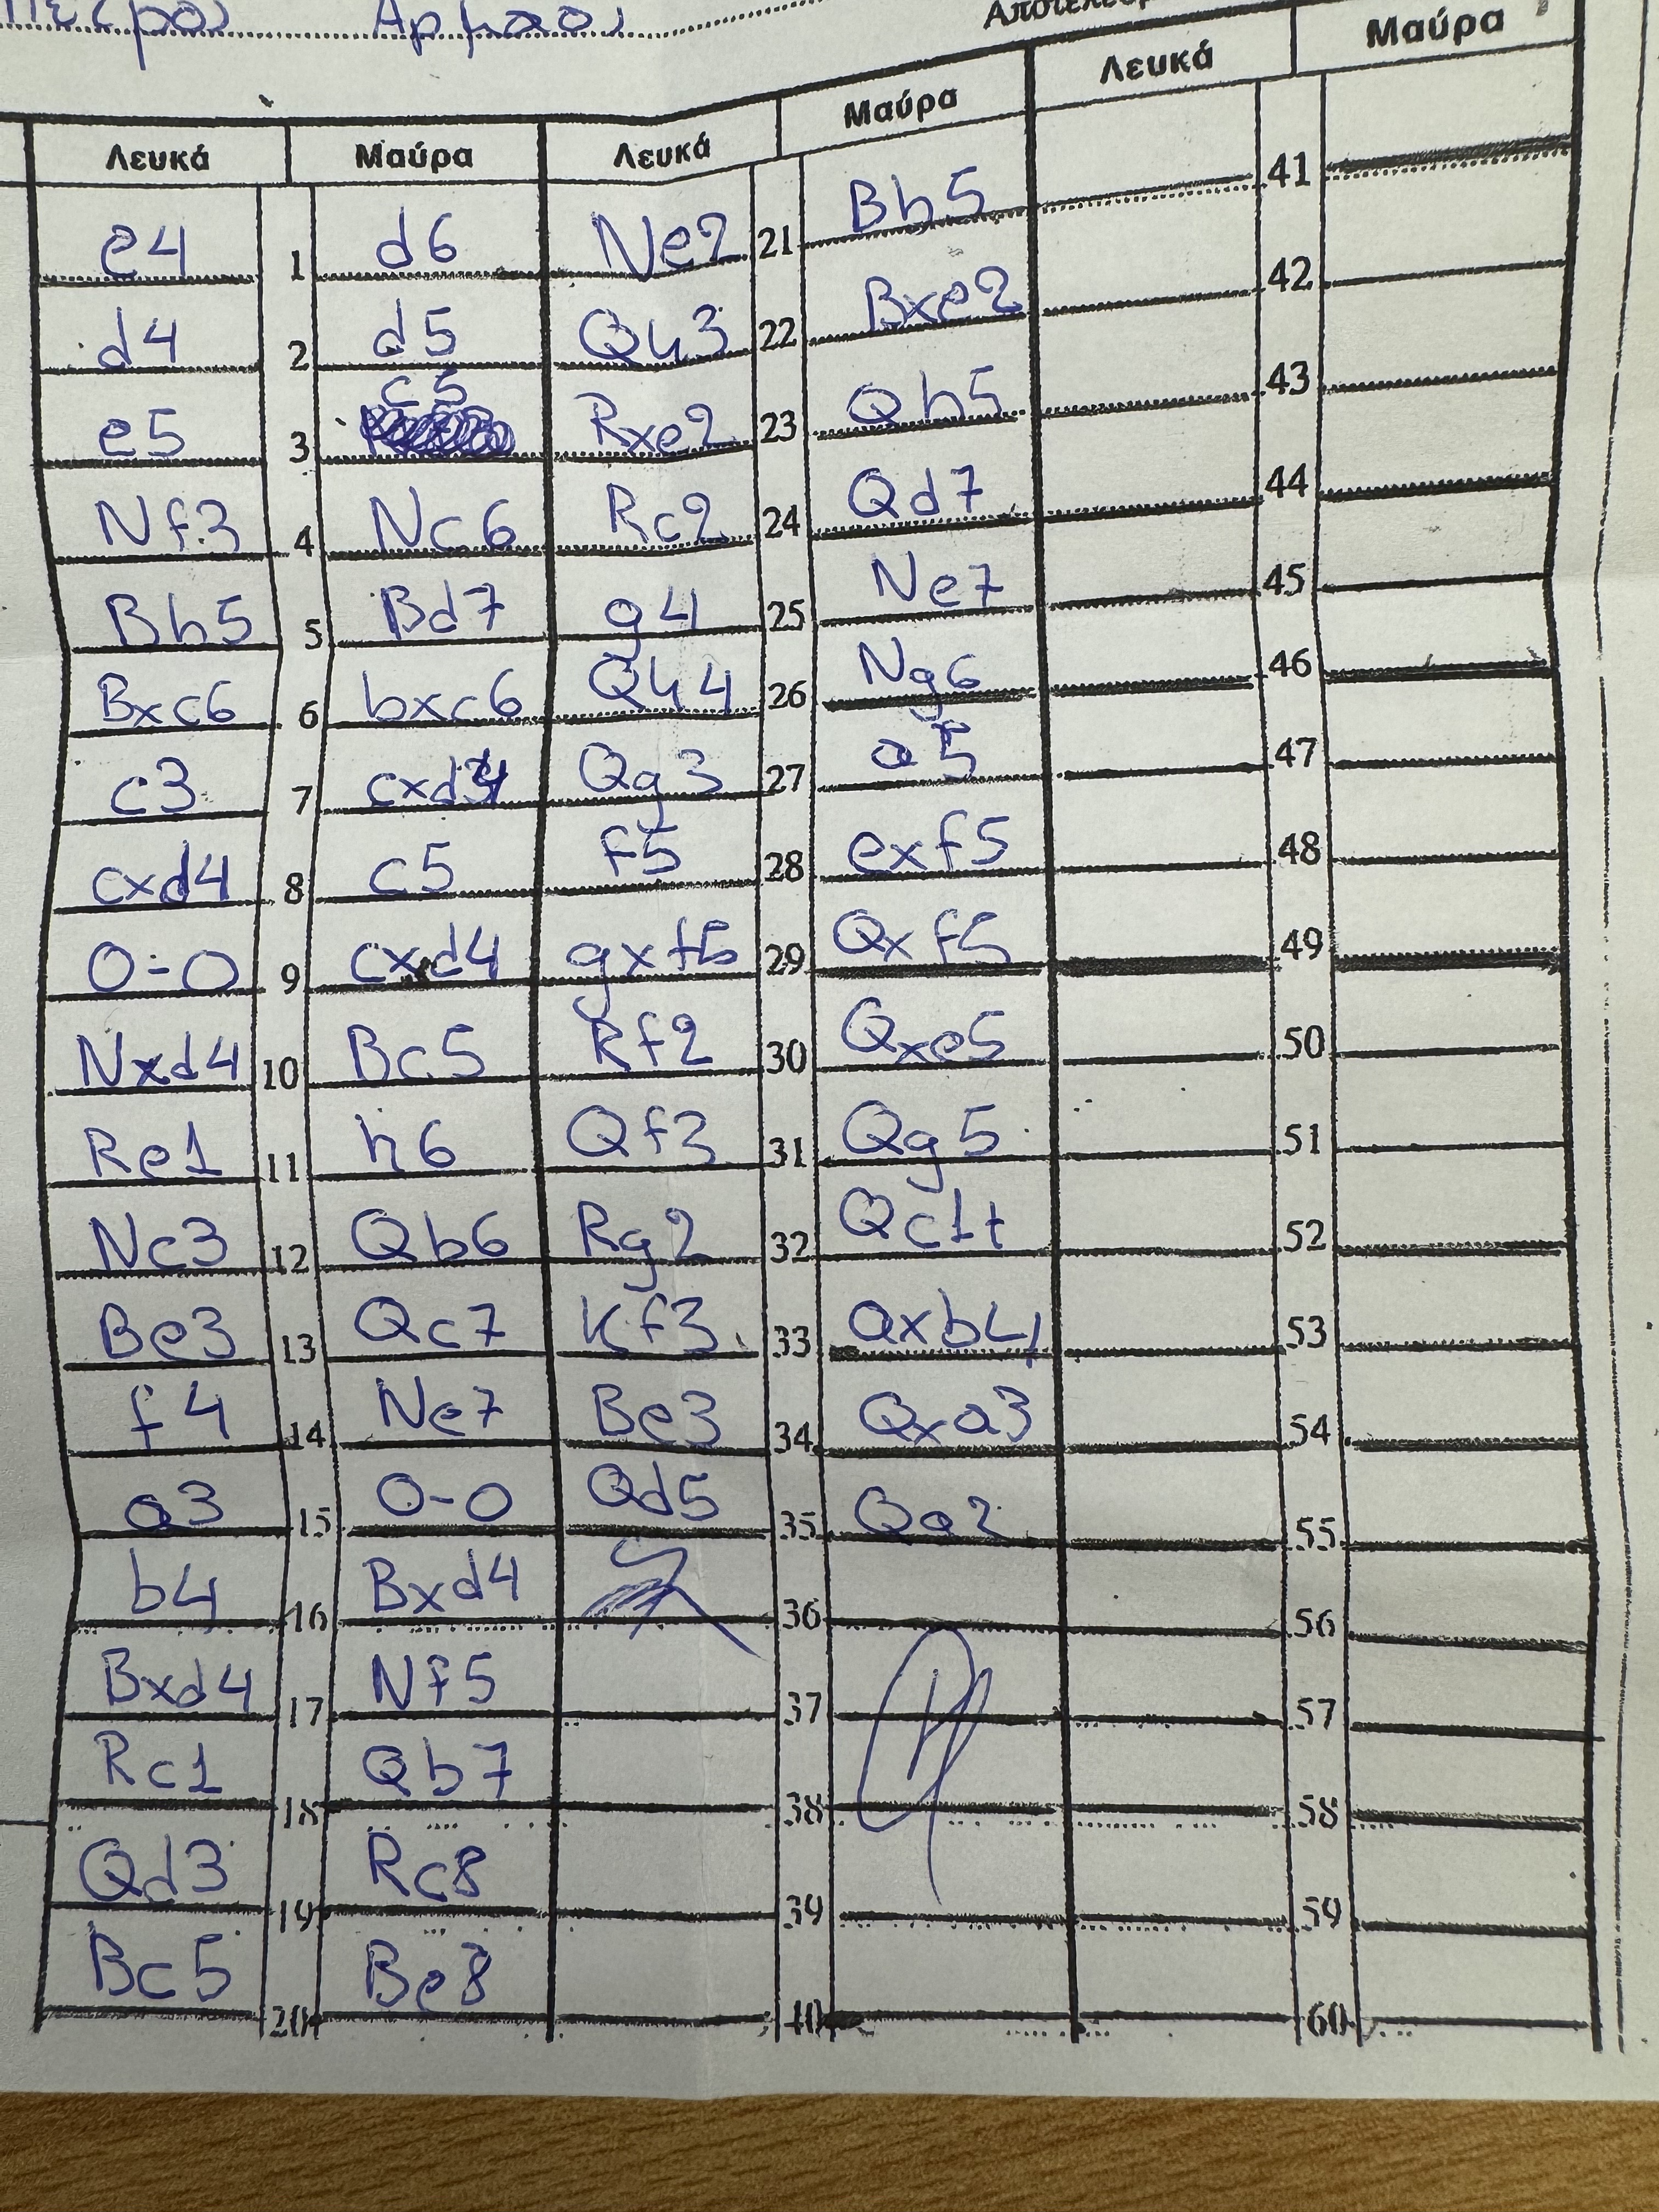 Πέτρος Αρμαος
Λευκά Μαύρα Λευκά Μαύρα Λευκά Μαύρα
e4 1 d6 Ne2 21 Bb5 41
d4 2 d5 Qh3 22 Bxe2 42
e5 3 c5 Rxe2 23 Qb5 43
Nf3 4 Nc6 Rc2 24 Qd7 44
Bb5 5 Bd7 g4 25 Ne7 45
Bxc6 6 bxc6 Qh4 26 Ng6 46
c3 7 cxd4 Qg3 27 a5 47
cxd4 8 c5 f5 28 exf5 48
0-0 9 cxd4 gxf5 29 Qxf5 49
Nxd4 10 Bc5 Rf2 30 Qxe5 50
Re1 11 h6 Qf3 31 Qg5 51
Nc3 12 Qb6 Rg2 32 Qc1+ 52
Be3 13 Qc7 Kf3 33 axb4 53
f4 14 Ne7 Be3 34 Qxa3 54
a3 15 0-0 Qd5 35 Qa2 55
b4 16 Bxd4 36 56
Bxd4 17 Nf5 37 57
Rc1 18 Qb7 38 58
Qd3 19 Rc8 39 59
Bc5 20 Be8 40 60